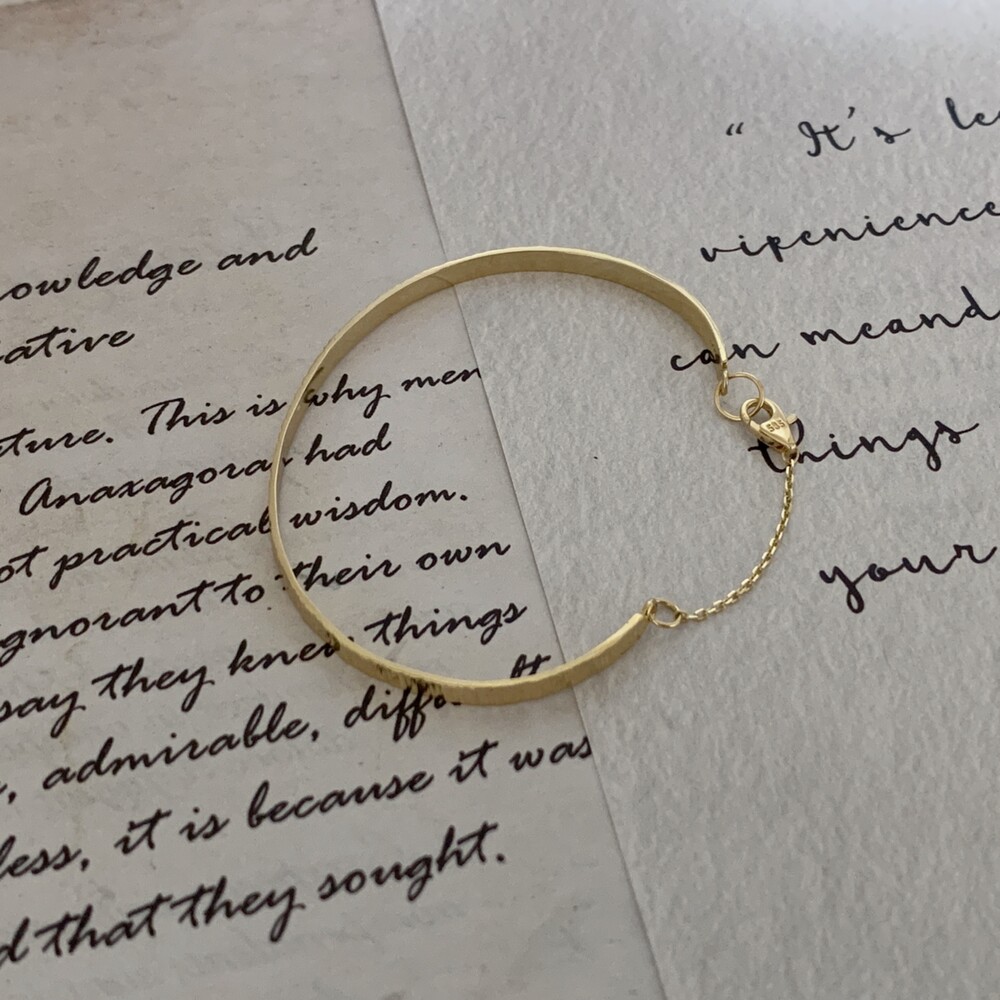 owledge and
ative
ture. This is why men
Anaxagora had
ot practical wisdom.
gnorant to their own
say they knew things
, admirable, diff
less, it is because it was
d that they sought.
“ It's le
vipenience
can meand
things
your
585